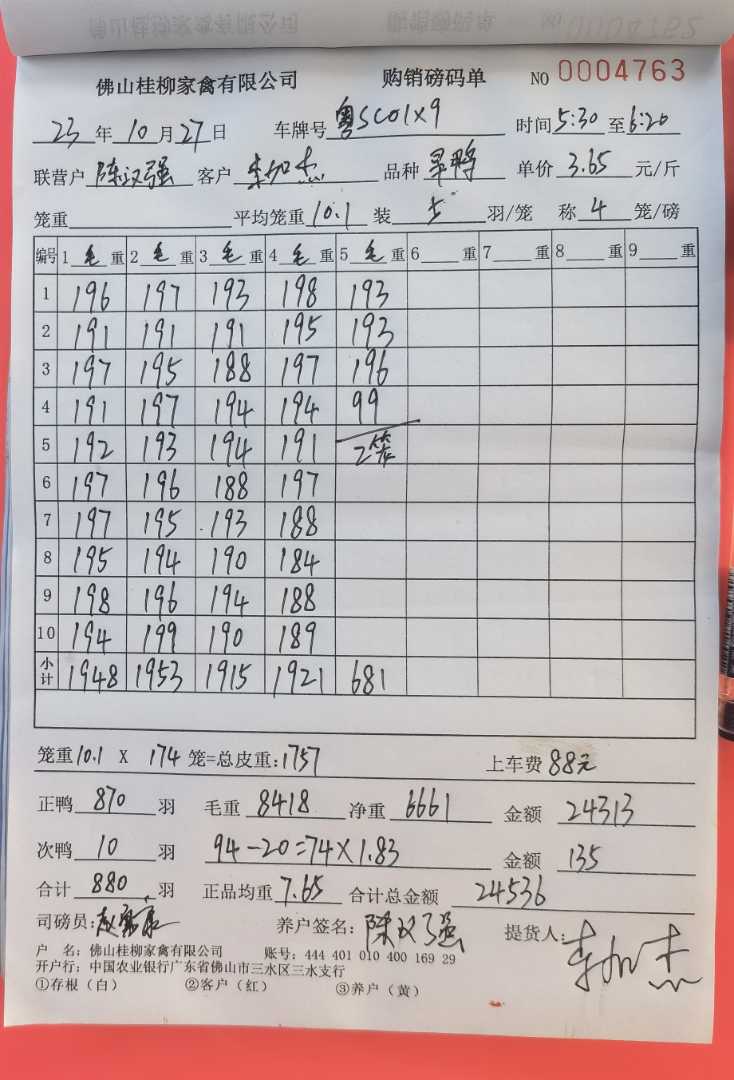 佛山桂柳家禽有限公司 购销磅码单 NO 0004763
23年10月27日 车牌号 粤SC01X9 时间 5:30 至 6:20
联营户 陈汉强 客户 李加杰 品种 旱鸭 单价 3.65 元/斤
笼重 平均笼重 10.1 装 5 羽/笼 称 4 笼/磅
编号 1 毛 重 2 毛 重 3 毛 重 4 毛 重 5 毛 重 6 重 7 重 8 重 9 重
1 196 197 193 198 193
2 191 191 191 195 193
3 197 195 188 197 196
4 191 197 194 194 99
5 192 193 194 191 2笼
6 197 196 188 197
7 197 195 193 188
8 195 194 190 184
9 198 196 194 188
10 194 199 190 189
小计 1948 1953 1915 1921 681
笼重 10.1 X 174 笼=总皮重: 1757 上车费 88元
正鸭 870 羽 毛重 8418 净重 6661 金额 24313
次鸭 10 羽 94-20=74×1.83 金额 135
合计 880 羽 正品均重 7.65 合计总金额 24536
司磅员: 养户签名: 陈汉强 提货人: 李加杰
户 名: 佛山桂柳家禽有限公司 账号: 444 401 010 400 169 29
开户行: 中国农业银行广东省佛山市三水区三水支行
①存根（白） ②客户（红） ③养户（黄）